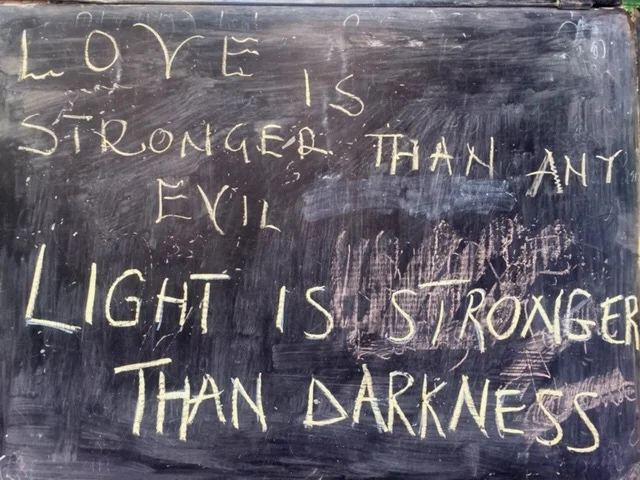 LOVE
IS
STRONGER THAN ANY
EVIL
LIGHT IS STRONGER
THAN DARKNESS